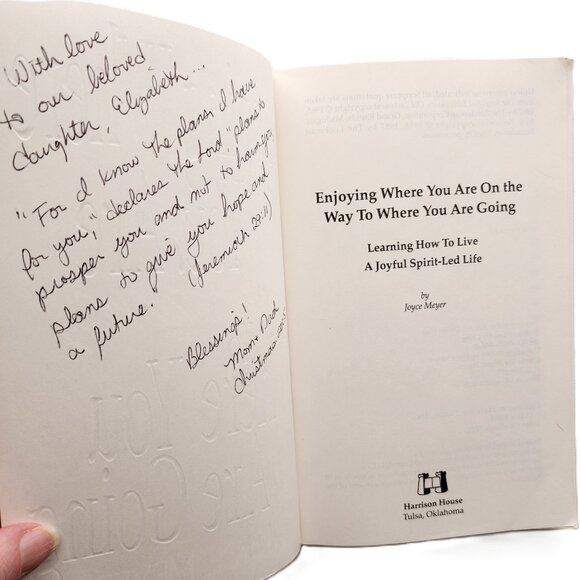 With love
to our beloved
daughter, Elizabeth...
"For I know the plans I have
for you," declares the Lord "plans to
prosper you and not to harm you
plans to give you hope and
a future. (Jeremiah 29:11)
Blessings!
Mom + Dad
Christmas
You
Are Going
Enjoying Where You Are On the
Way To Where You Are Going
Learning How To Live
A Joyful Spirit-Led Life
by
Joyce Meyer
Harrison House
Tulsa, Oklahoma